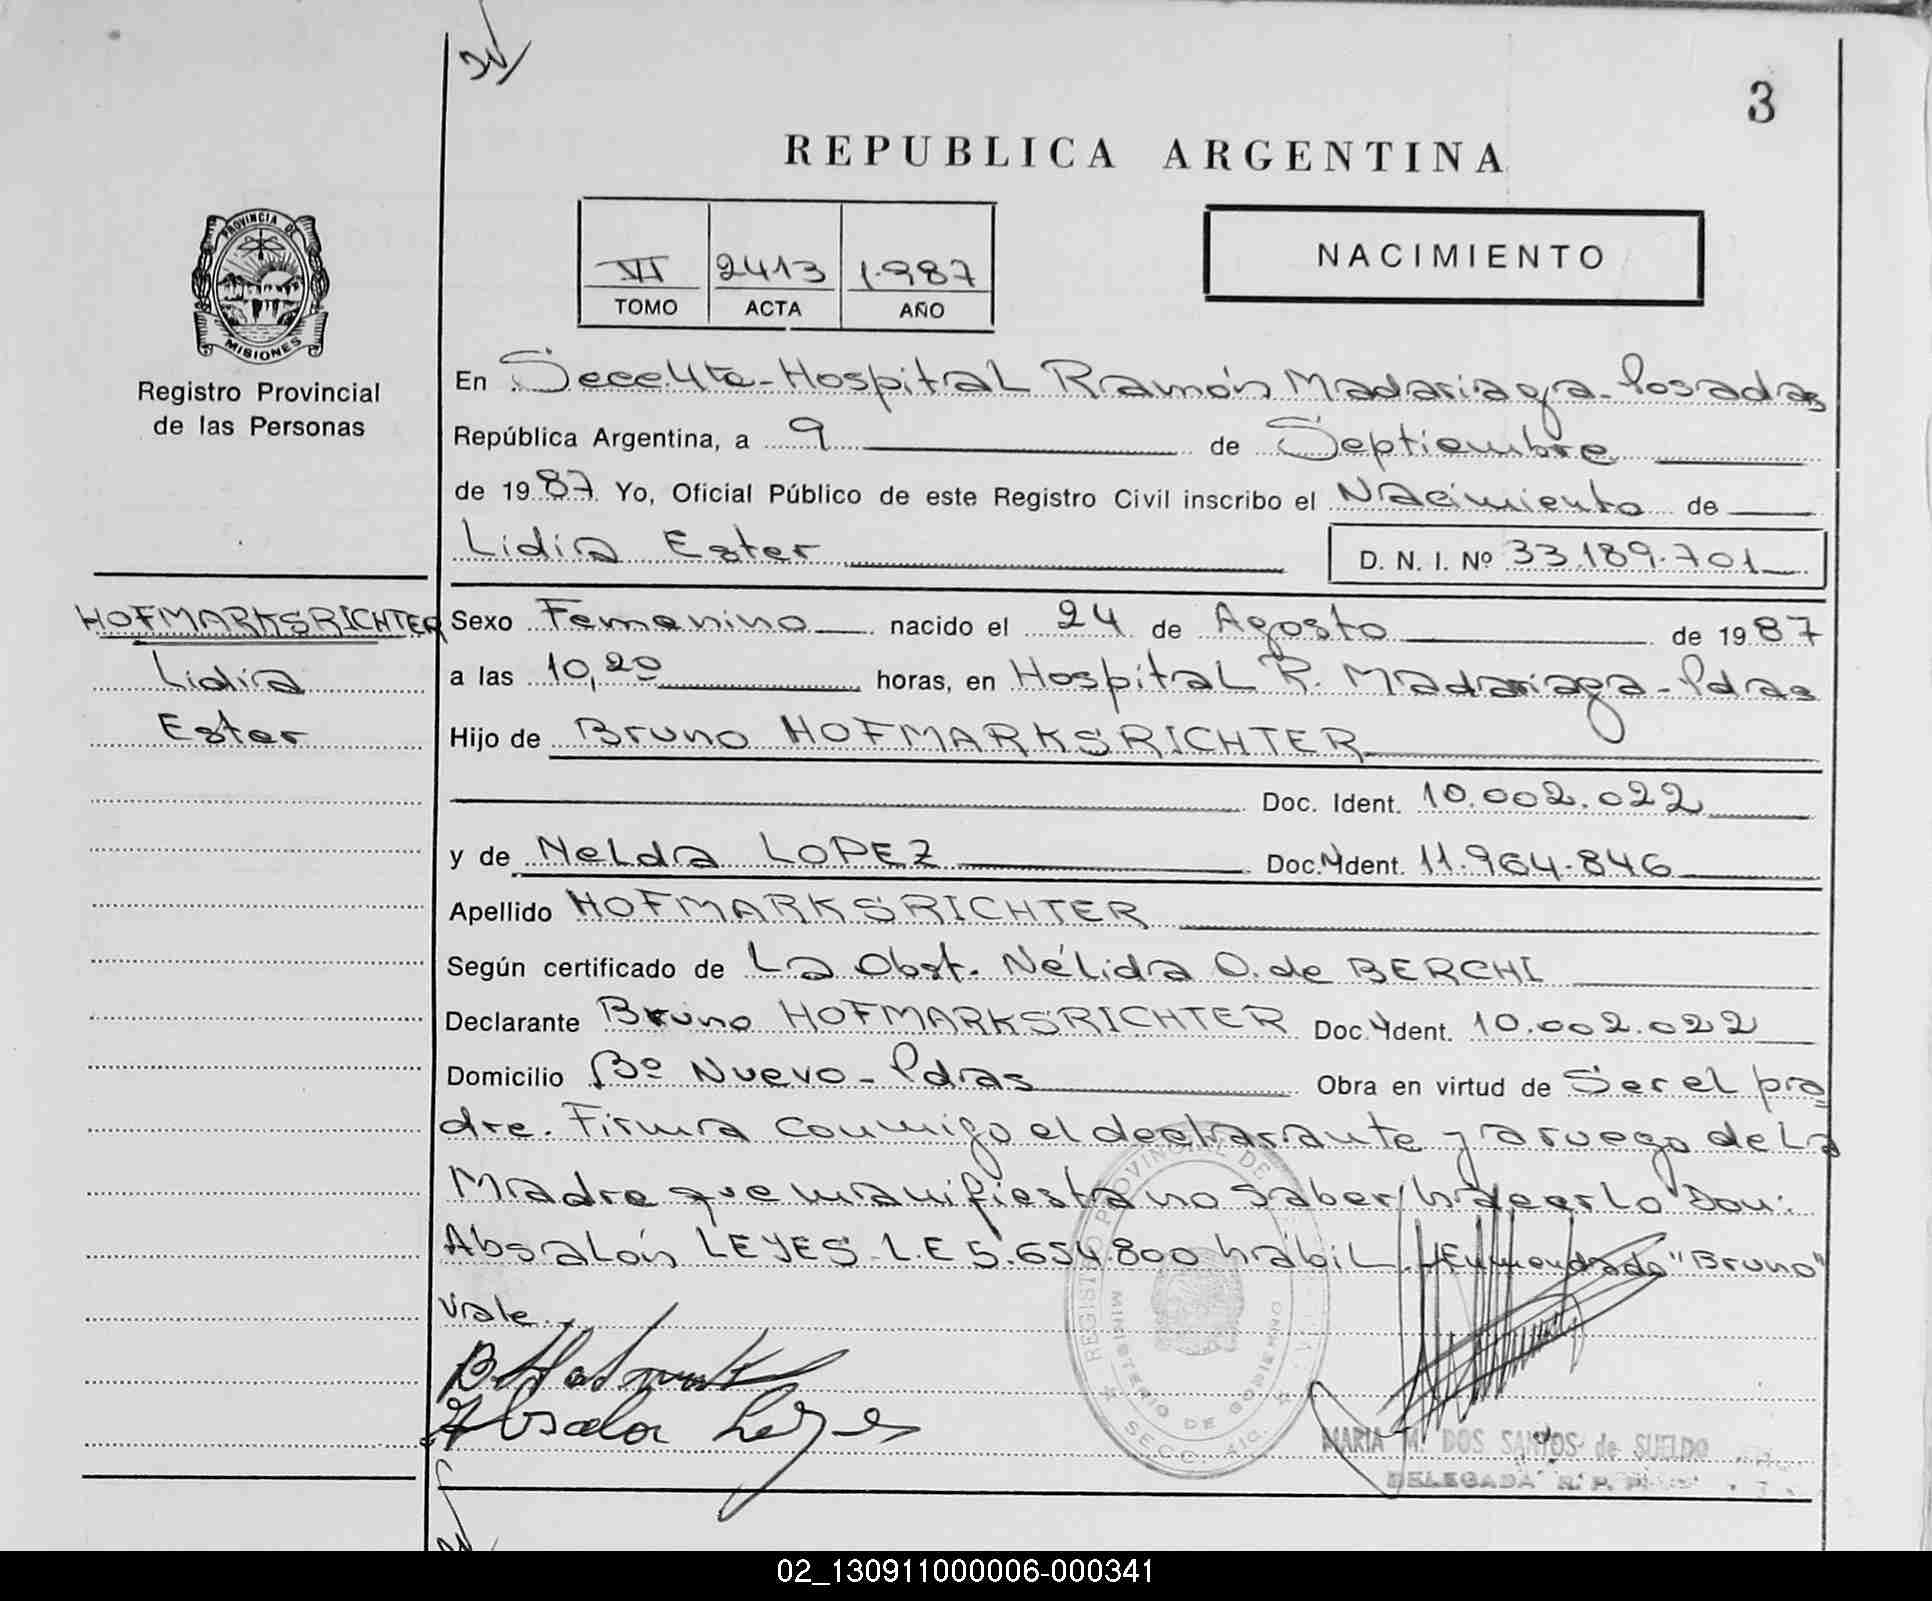 3
REPUBLICA ARGENTINA
VI 2413 1.987
TOMO ACTA AÑO
NACIMIENTO
PROVINCIA DE
MISIONES
Registro Provincial
de las Personas
En Hospital Ramón Madariaga - Posadas
República Argentina, a 9 de Septiembre
de 1987 Yo, Oficial Público de este Registro Civil inscribo el Nacimiento de
Lidia Ester D. N. I. Nº 33.189.701
HOFMARKSRICHTER
Lidia
Ester
Sexo Femenino nacido el 24 de Agosto de 1987
a las 10,20 horas, en Hospital R. Madariaga - Pdas
Hijo de Bruno HOFMARKSRICHTER
Doc. Ident. 10.002.022
y de Nelda LOPEZ Doc. Ident. 11.964.846
Apellido HOFMARKSRICHTER
Según certificado de La Obst. Nélida O. de BERCHI
Declarante Bruno HOFMARKSRICHTER Doc. Ident. 10.002.022
Domicilio Bº Nuevo - Pdas Obra en virtud de Ser el pa
dre. Firma conmigo el declarante y a ruego de La
Madre que manifiesta no saber hacerlo Don:
Absalón LEYES L.E 5.654.800 hábil. Enmendado "Bruno"
Vale.
Absalon Leyes
REGISTRO PROVINCIAL DE
MINISTERIO DE GOBIERNO
MARIA M. DOS SANTOS de SUELDO
DELEGADA R. P. P.
02_130911000006-000341